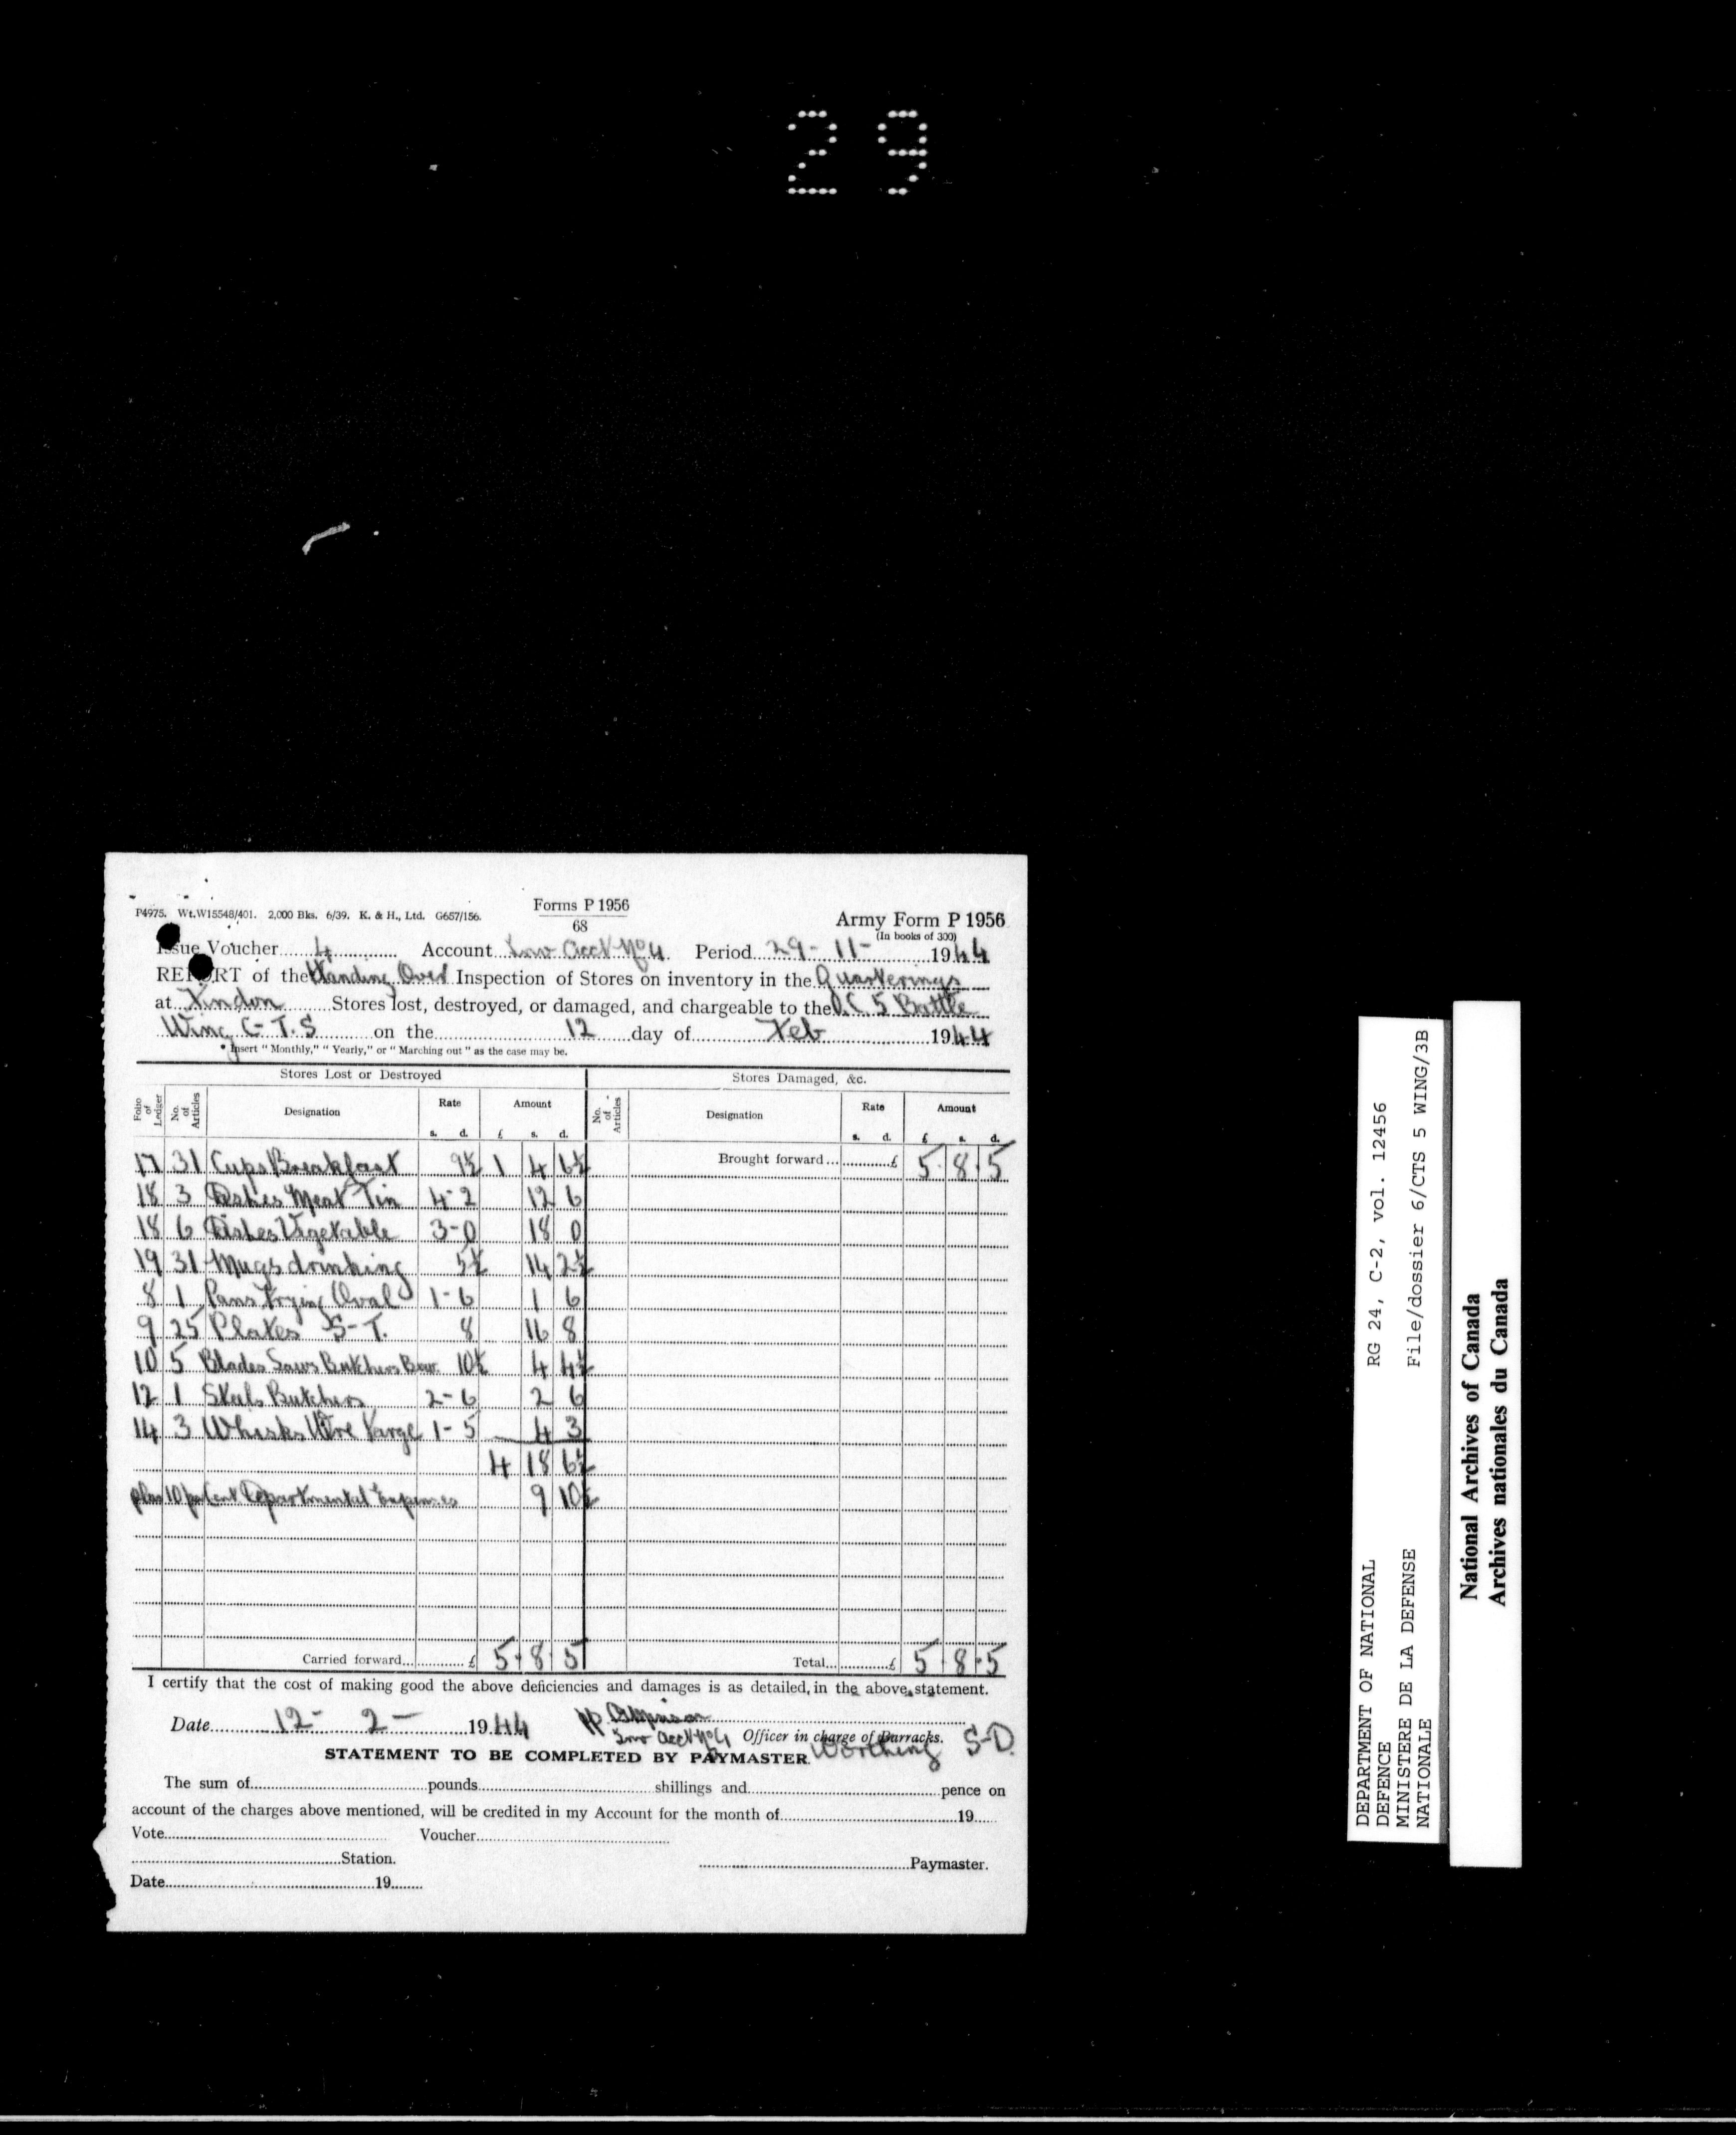 29
P4975. Wt.W15548/401. 2,000 Bks. 6/39. K. & H., Ltd. G657/156.
Forms P 1956
68
Army Form P 1956
(In books of 300)
Issue Voucher 4 Account Inv Acct No 4 Period 29-11- 1944
REPORT of the Handing Over Inspection of Stores on inventory in the Quarterings
at Findon Stores lost, destroyed, or damaged, and chargeable to the O.C. 5 Battle
Wing C.T.S on the 12 day of Feb 1944
* Insert "Monthly," "Yearly," or "Marching out" as the case may be.
Stores Lost or Destroyed Stores Damaged, &c.
Folio of Ledger No. of Articles Designation Rate s. d. Amount £ s. d. No. of Articles Designation Rate s. d. Amount £ s. d.
17 31 Cups Breakfast 9½ 1 4 6½ Brought forward... £ 5 8 5
18 3 Dishes Meat Tin 4-2 12 6
18 6 Dishes Vegetable 3-0 18 0
19 31 Mugs drinking 5½ 14 2½
8 1 Pans Frying Oval 1-6 1 6
9 25 Plates S-T. 8 16 8
10 5 Blades Saws Butchers Bow 10½ 4 4½
12 1 Steels Butchers 2-6 2 6
14 3 Whisks Wire Large 1-5 4 3
4 18 6½
plus 10 per Cent Departmental Expenses 9 10½
Carried forward... £ 5 8 5 Total... £ 5 8 5
I certify that the cost of making good the above deficiencies and damages is as detailed, in the above statement.
Date 12- 2- 1944
Inv Acct No 4 Officer in charge of Barracks.
Worthing S-D.
STATEMENT TO BE COMPLETED BY PAYMASTER.
The sum of pounds shillings and pence on
account of the charges above mentioned, will be credited in my Account for the month of 19
Vote Voucher
Station. Paymaster.
Date 19
DEPARTMENT OF NATIONAL RG 24, C-2, vol. 12456
DEFENCE
MINISTERE DE LA DEFENSE File/dossier 6/CTS 5 WING/3B
NATIONALE
National Archives of Canada
Archives nationales du Canada